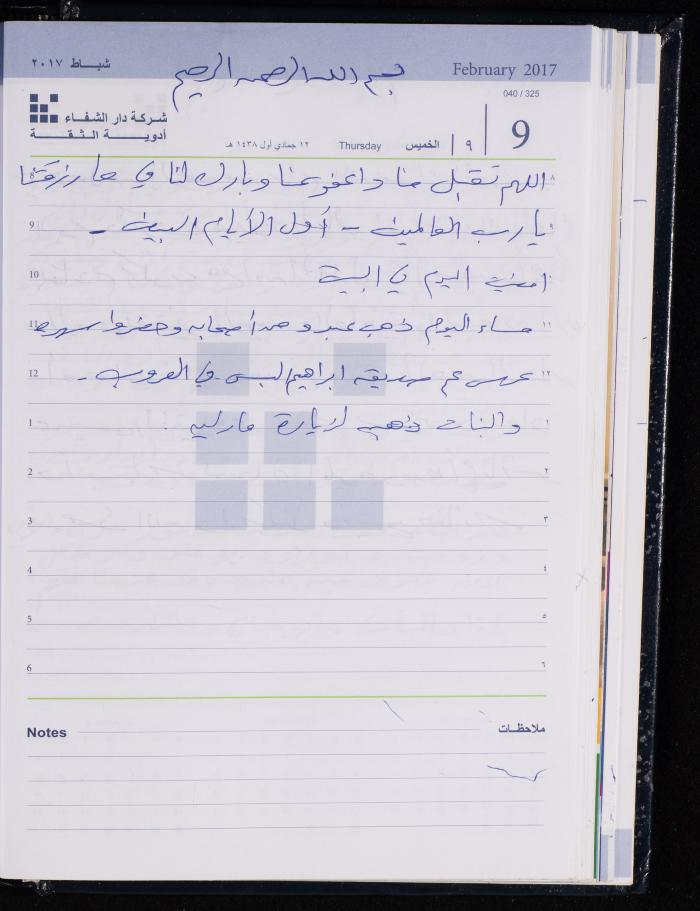 شبـــاط ٢٠١٧
بسم الله الرحمن الرحيم
February 2017
040 / 325
شركة دار الشفاء
أدويـــــة الـثـقــة
9
٩
الخميس
Thursday
١٢ جمادي أول ١٤٣٨ هـ
اللهم تقبل منا واعفو عنا وبارك لنا في ما رزقتنا
يا رب العالمين - أول الأيام البيض -
امضيت اليوم في البيت
مساء اليوم ذهب عبد و أصحابه وحضروا سهرة
عرس عم صديقه ابراهيم في العروب -
والبنات ذهبن لزيارة
8 ٨
9 ٩
10
11 ١١
12 ١٢
1 ١
2 ٢
3 ٣
4 ٤
5 ٥
6 ٦
Notes
ملاحظـات